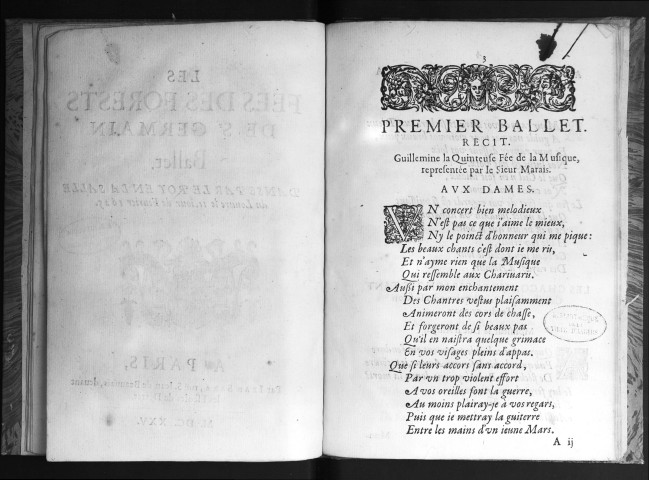 LES
FÉES DES FORESTS
DE St GERMAIN
Ballet,
DANSÉ PAR LE ROY EN LA SALLE
du Louure le
iour de Feurier
A PARIS,
M. DC. XXV.
3
PREMIER BALLET.
RECIT.
Guillemine la Quinteuse Fée de la Musique,
representée par le Sieur Marais.
AVX DAMES.
VN concert bien melodieux
N'est pas ce que i'aime le mieux,
Ny le poinct d'honneur qui me pique:
Les beaux chants c'est dont ie me ris,
Et n'ayme rien que la Musique
Qui ressemble aux Chariuaris.
Aussi par mon enchantement
Des Chantres vestus plaisamment
Animeront des cors de chasse,
Et forgeront de si beaux pas
Qu'il en naistra quelque grimace
En vos visages pleins d'appas.
Que si leurs accort sans accord,
Par vn trop violent effort
A vos oreilles font la guerre,
Au moins plairay-je à vos regars,
Puis que ie mettray la guiterre
Entre les mains d'vn ieune Mars.
A ij